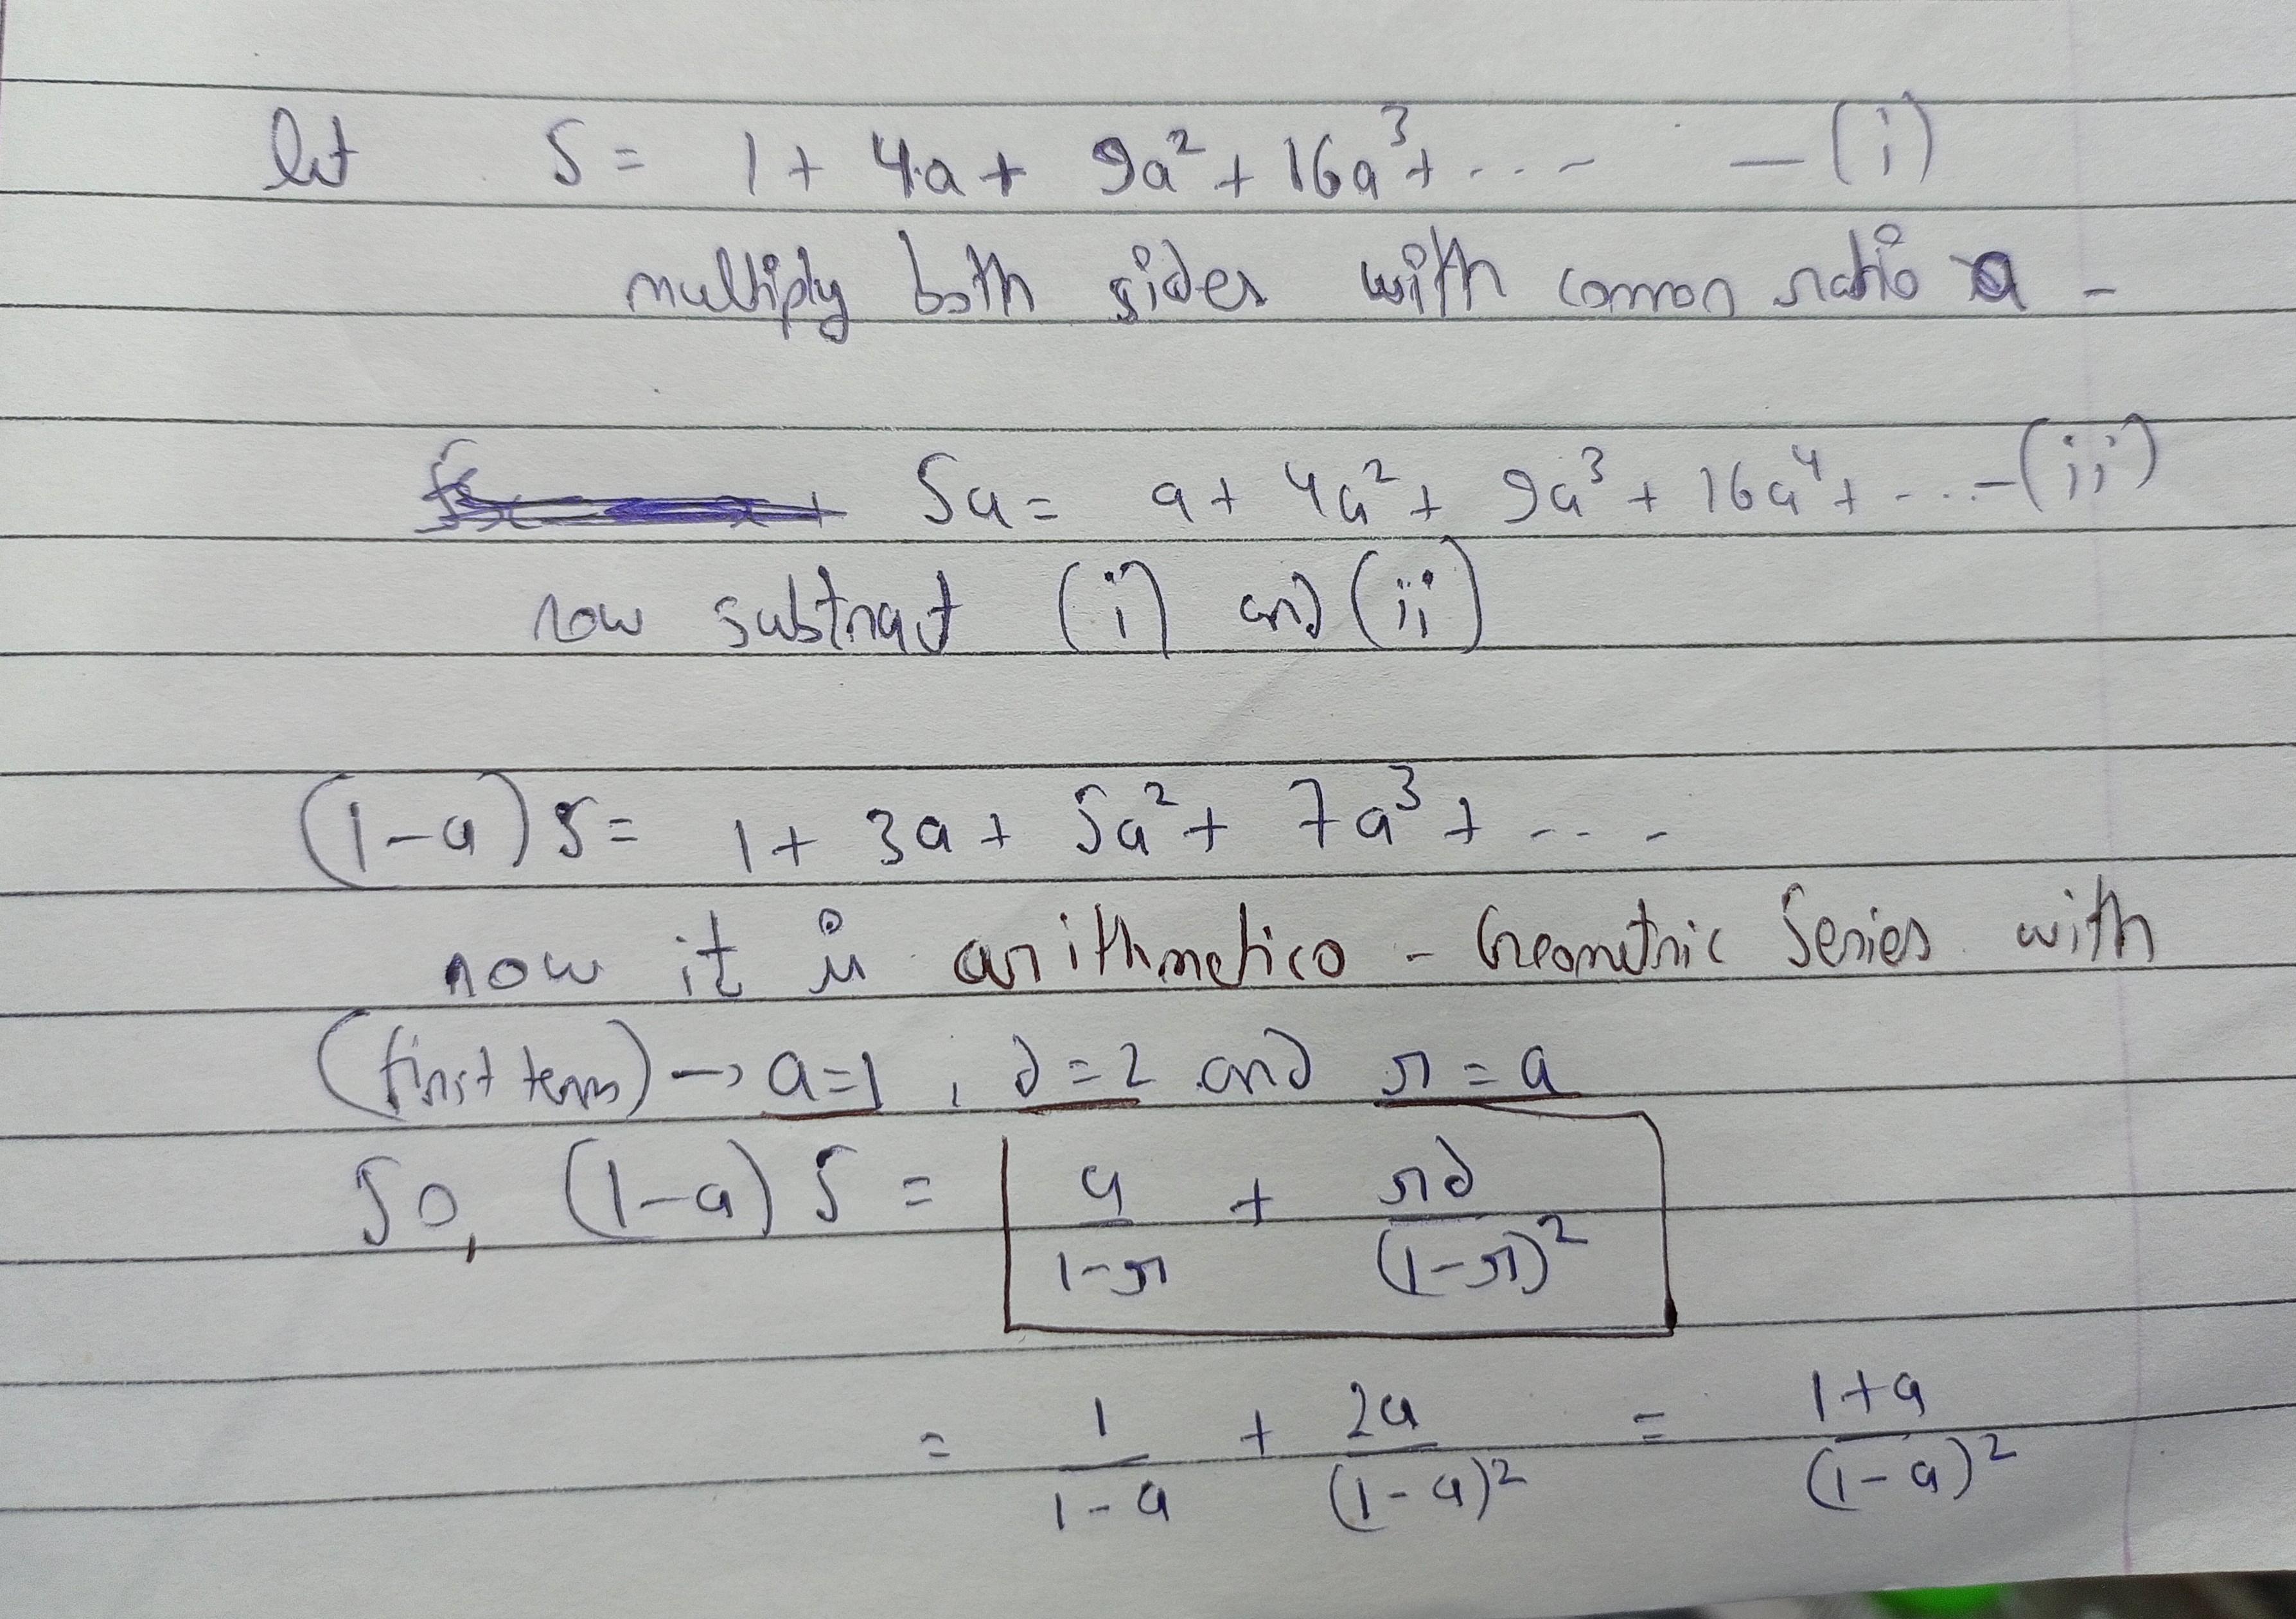 let S = 1 + 4a + 9a² + 16a³ + ... - — (i)
multiply both sides with common ratio a -
Sa = a + 4a² + 9a³ + 16a⁴ + ... - (ii)
now subtract (i) and (ii)
(1-a) S = 1 + 3a + 5a² + 7a³ + ...
now it is arithmetico - Geometric Series with
(first term) → a=1 , d=2 and r=a
So, (1-a) S = a/(1-r) + rd/(1-r)²
= 1/(1-a) + 2a/(1-a)² = (1+a)/(1-a)²